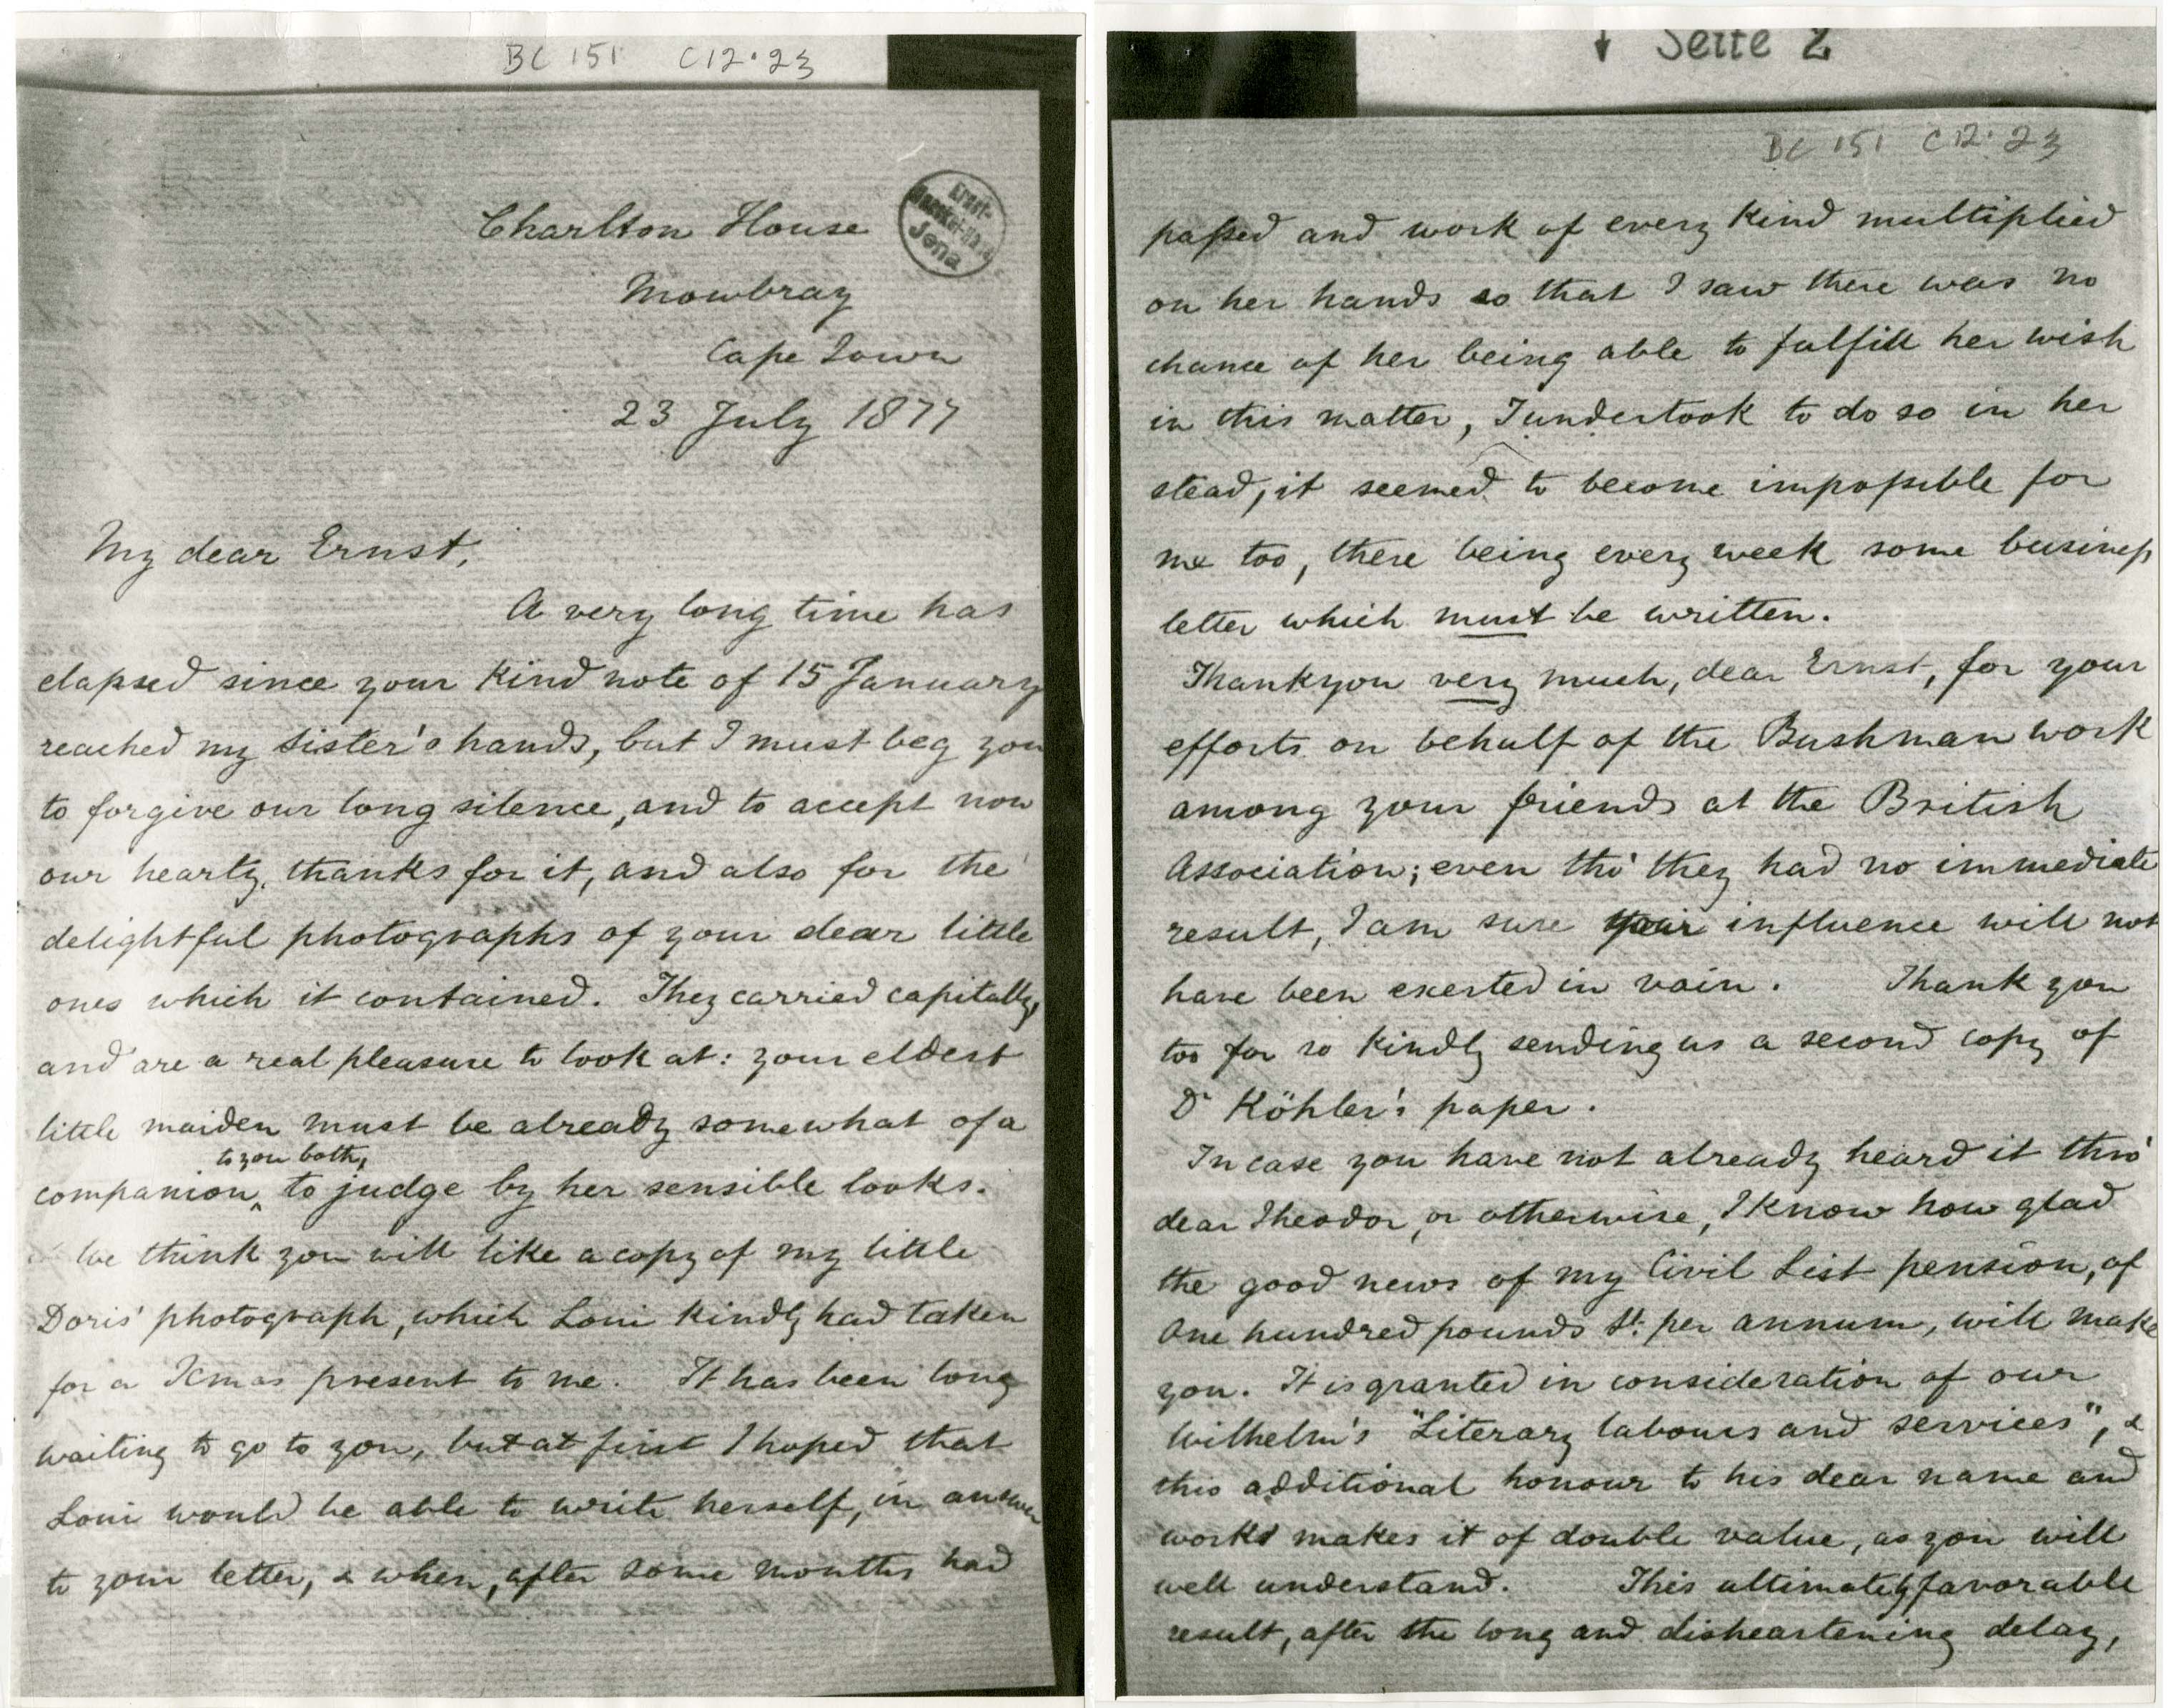 BC 151 C12.23
Ernst-
Haeckel-Haus
Jena
Charlton House
Mowbray
Cape Town
23 July 1877
My dear Ernst,
A very long time has
elapsed since your kind note of 15 January
reached my sister's hands, but I must beg you
to forgive our long silence, and to accept now
our hearty thanks for it, and also for the
delightful photographs of your dear little
ones which it contained. They carried capitally,
and are a real pleasure to look at: your eldest
little maiden must be already somewhat of a
to you both,
companion ‸ to judge by her sensible looks.
We think you will like a copy of my little
Doris' photograph, which Loui kindly had taken
for a Xmas present to me. It has been long
waiting to go to you, but at first I hoped that
Loui would be able to write herself, in answer
to your letter, & when, after some months had
↓ Seite 2
BC 151 C12.23
passed and work of every kind multiplied
on her hands so that I saw there was no
chance of her being able to fulfill her wish
in this matter, I undertook to do so in her
stead, it seemed to become impossible for
me too, there being every week some business
letter which must be written.
Thank you very much, dear Ernst, for your
efforts on behalf of the Bushman work
among your friends at the British
Association; even tho' they had no immediate
result, I am sure your influence will not
have been exerted in vain. Thank you
too for so kindly sending us a second copy of
Dr Köhler's paper.
In case you have not already heard it thro'
dear Theodor, or otherwise, I know how glad
the good news of my Civil List pension, of
One hundred pounds St: per annum, will make
you. It is granted in consideration of our
Wilhelm's "Literary labours and services", &
this additional honour to his dear name and
works makes it of double value, as you will
well understand. This ultimately favorable
result, after the long and disheartening delay,